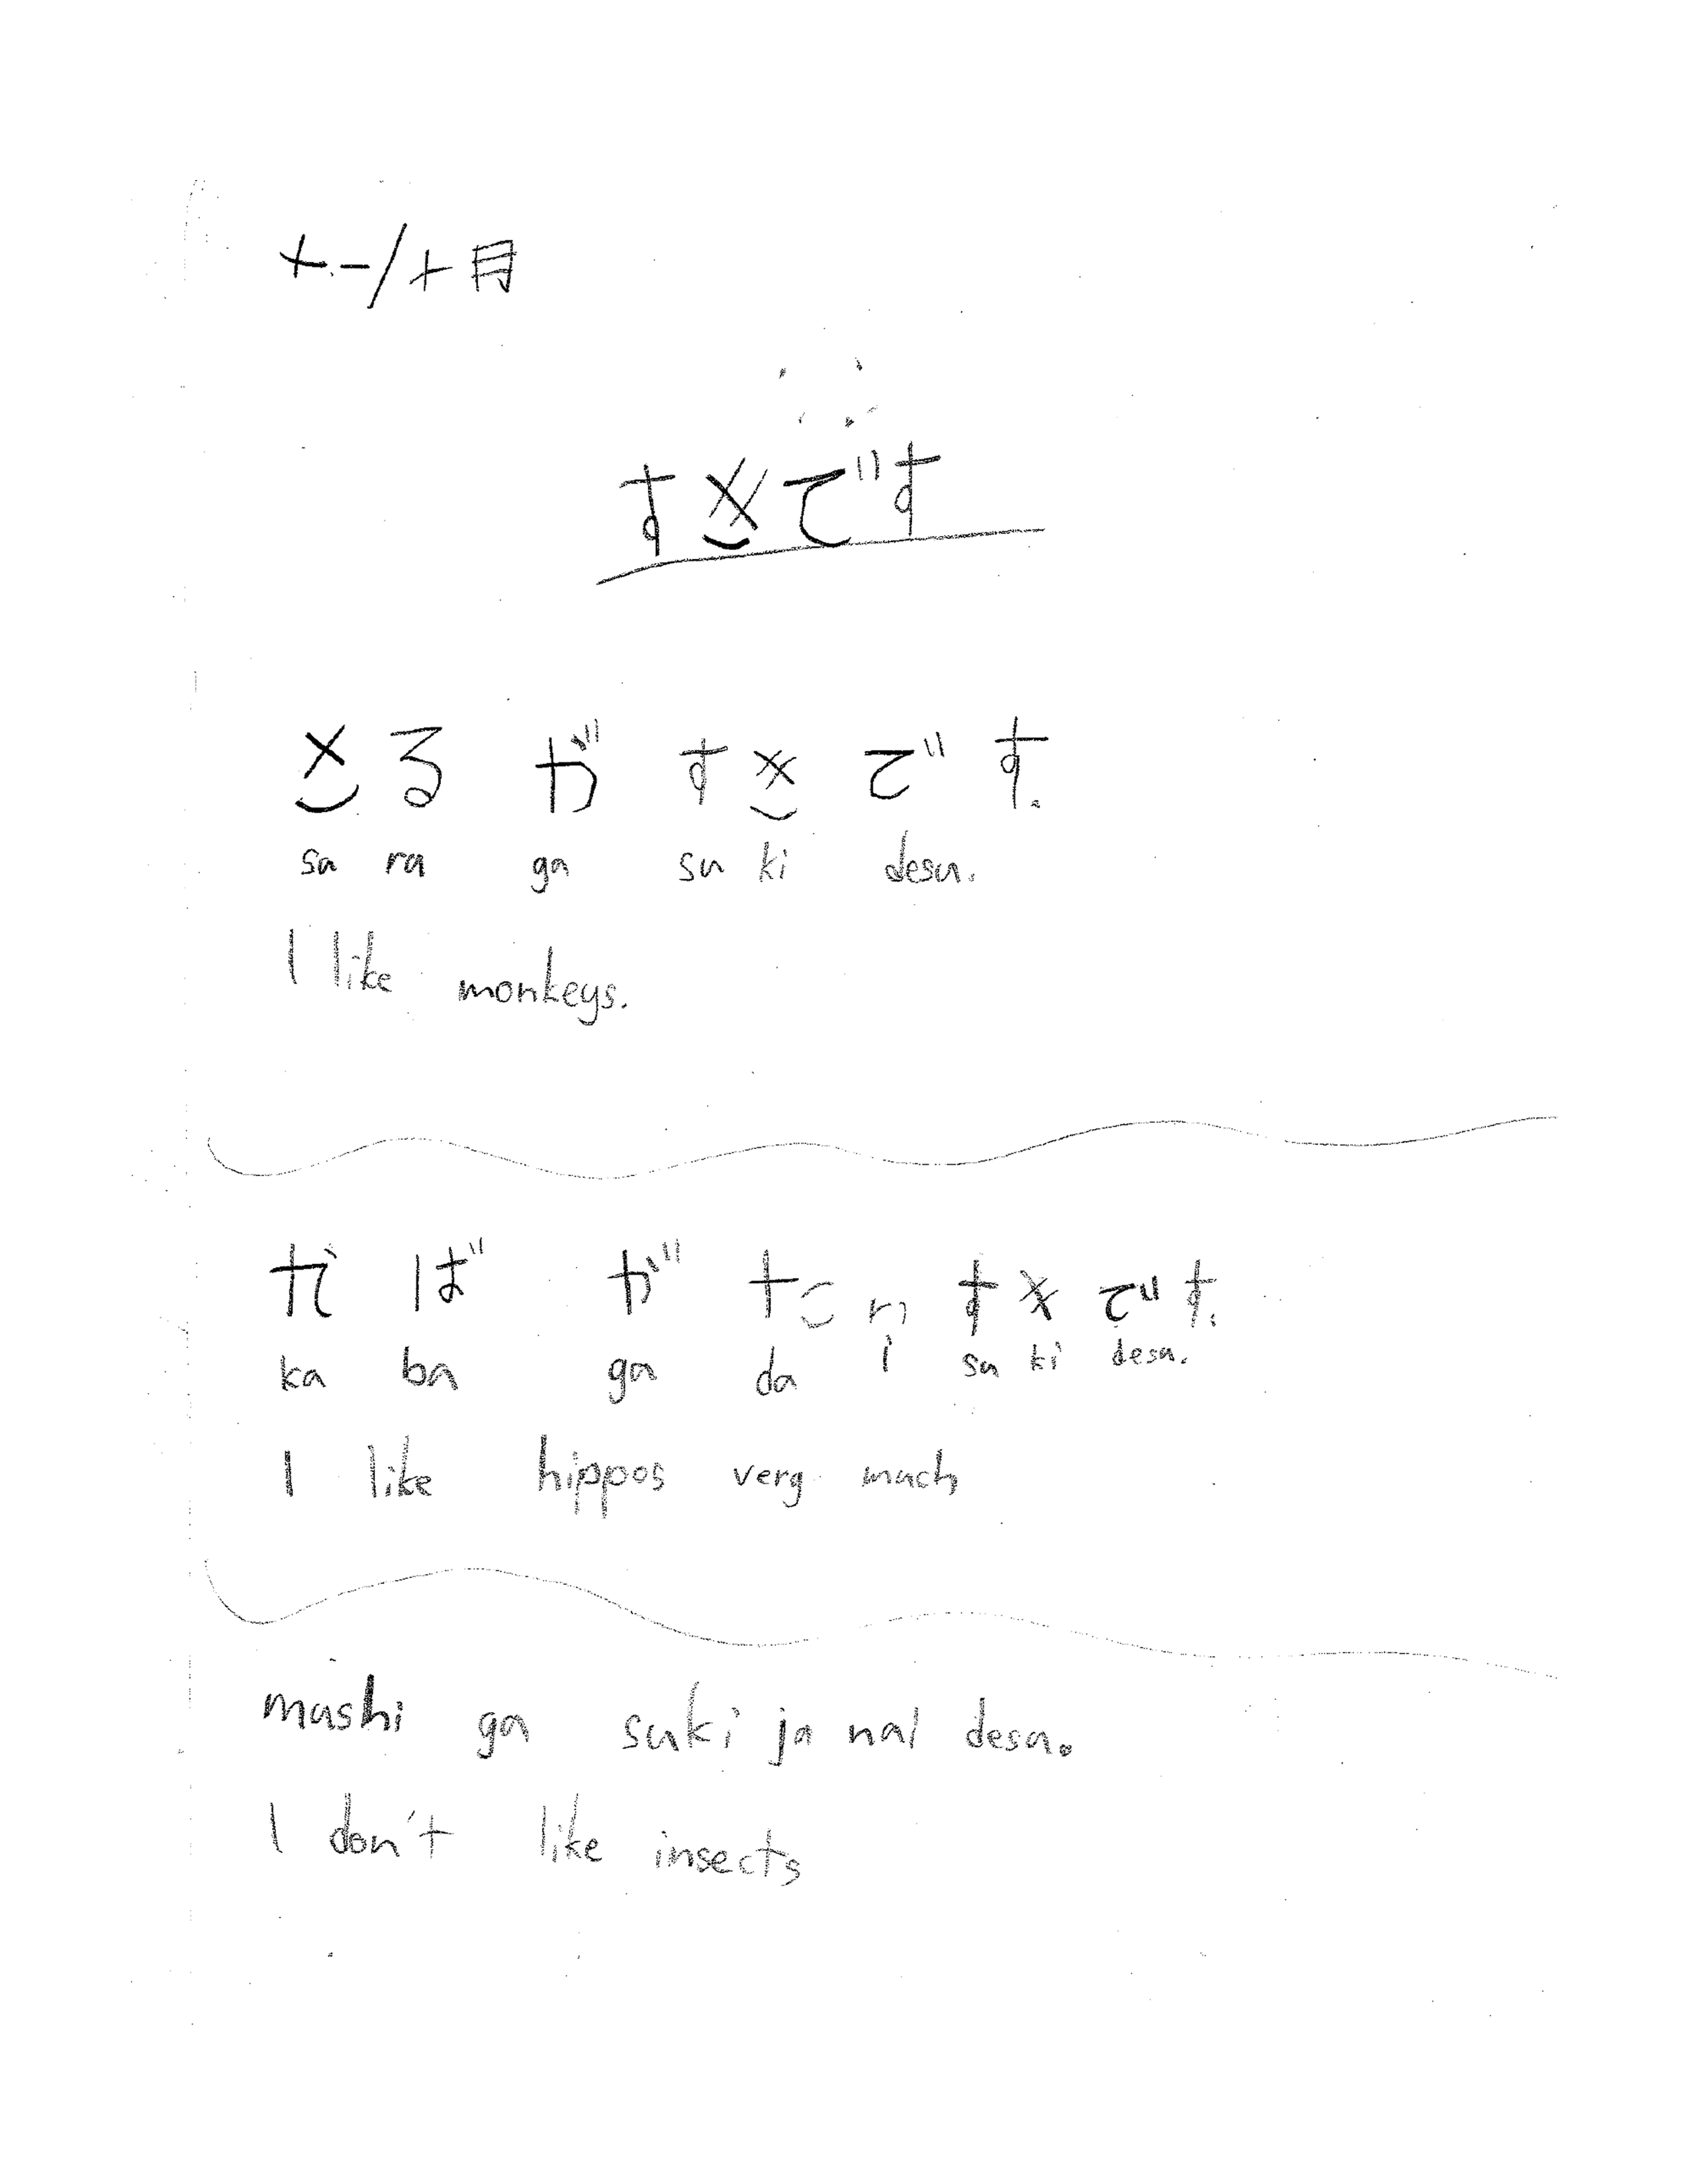 十一/十月
すきです
さるがすきです.
sa ra ga su ki desu.
I like monkeys.
かばがたいすきです.
ka ba ga da i su ki desu.
I like hippos very much
mushi ga suki ja nai desu.
I don't like insects